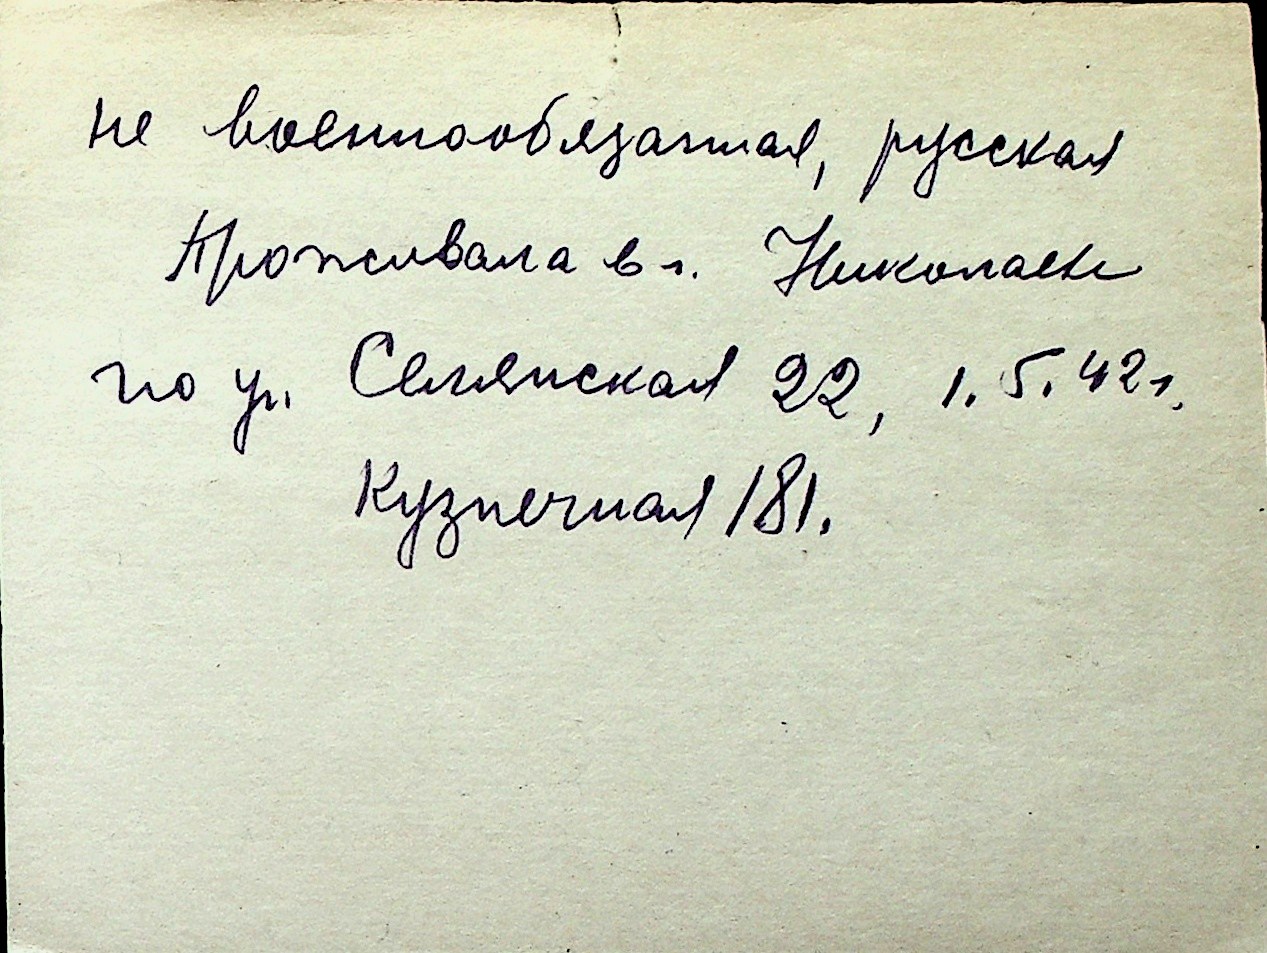 не военнообязанная, русская
Проживала в г. Николаеве
по ул. Селянская 22, 1.5.42г.
Кузнечная 181.